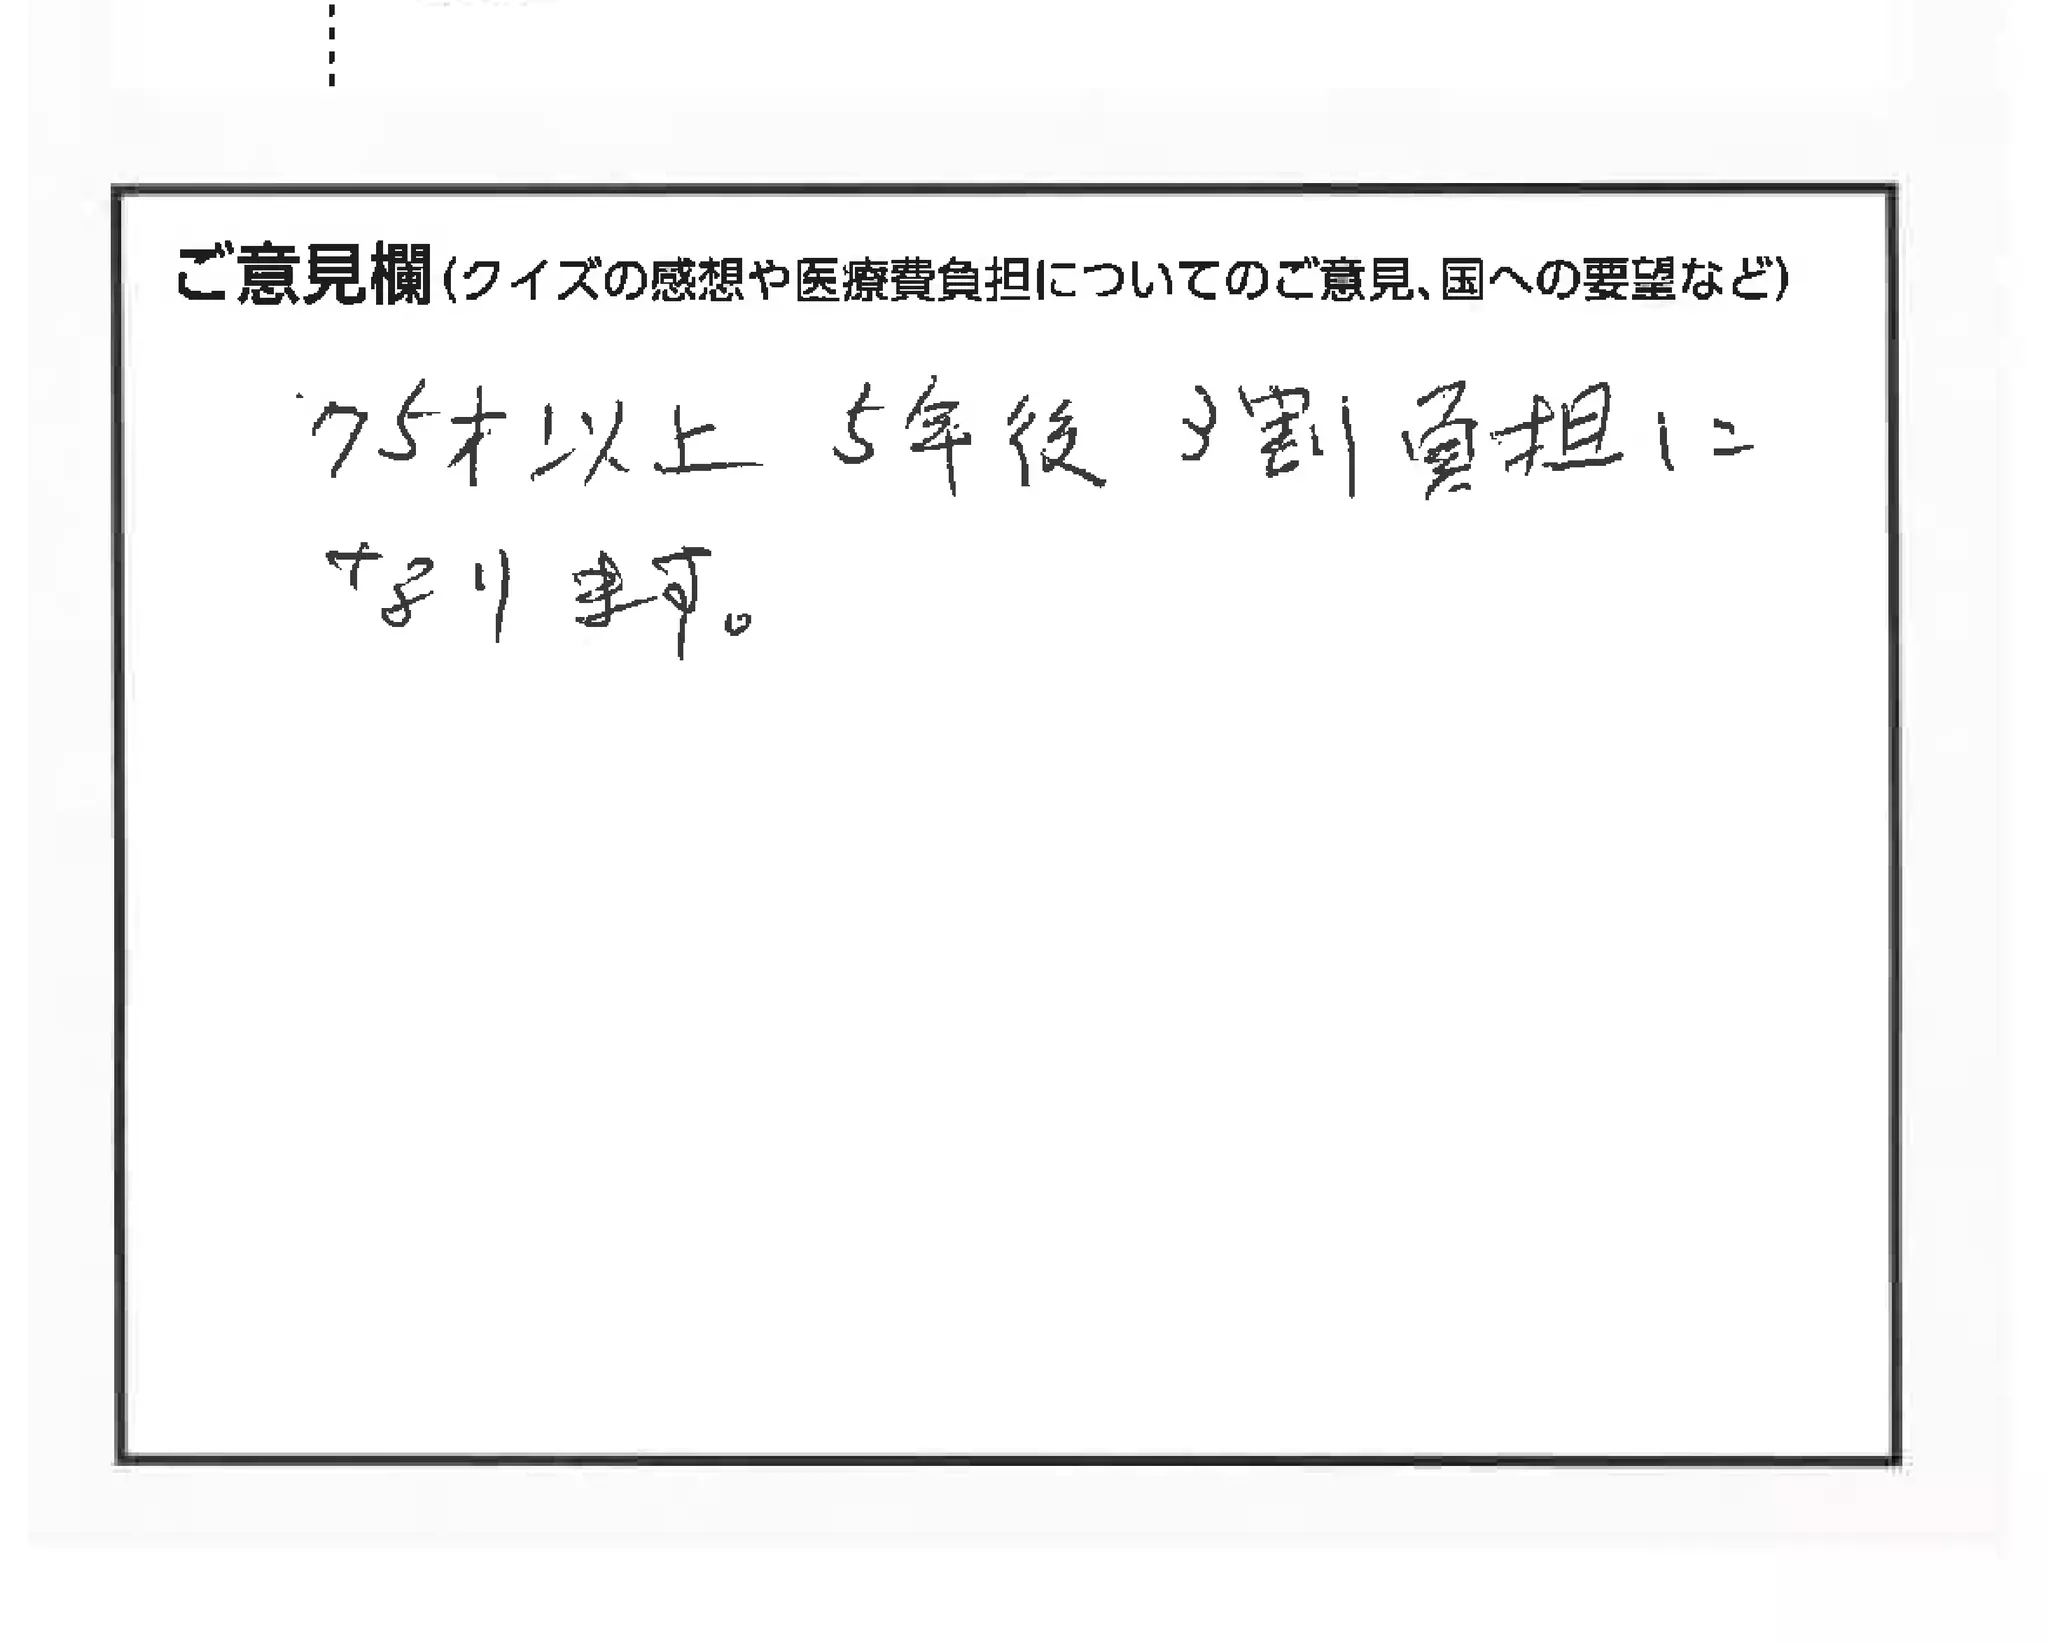 ご意見欄(クイズの感想や医療費負担についてのご意見、国への要望など)
75才以上 5年後 3割負担に
なります。